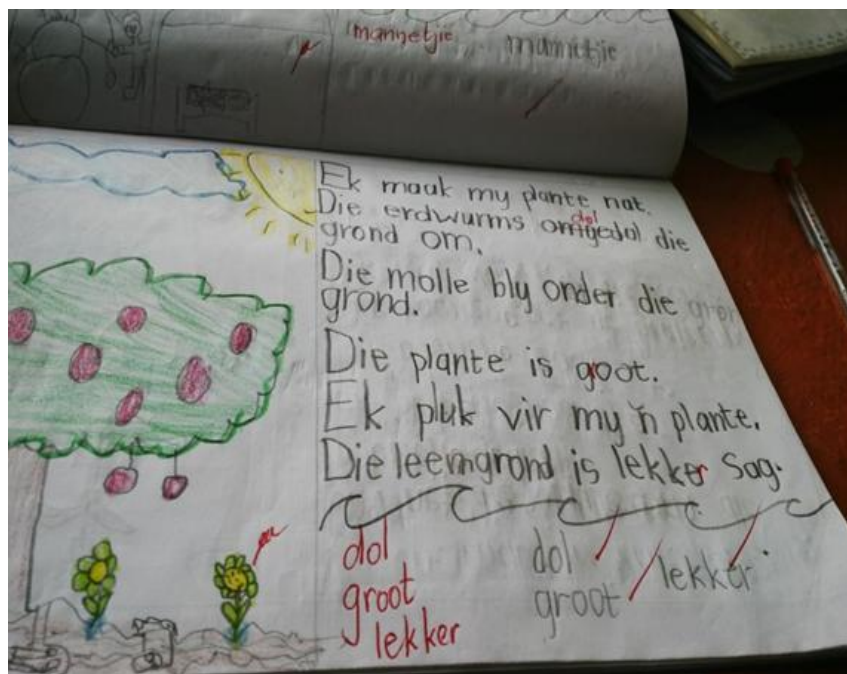 mannetjie mannetjie
Ek maak my plante nat.
dol
Die erdwurms omgedol die
grond om.
Die molle bly onder die
grond.
Die plante is groot.
Ek pluk vir my 'n plante.
Die leemgrond is lekker sag.
dol dol
groot groot lekker
lekker